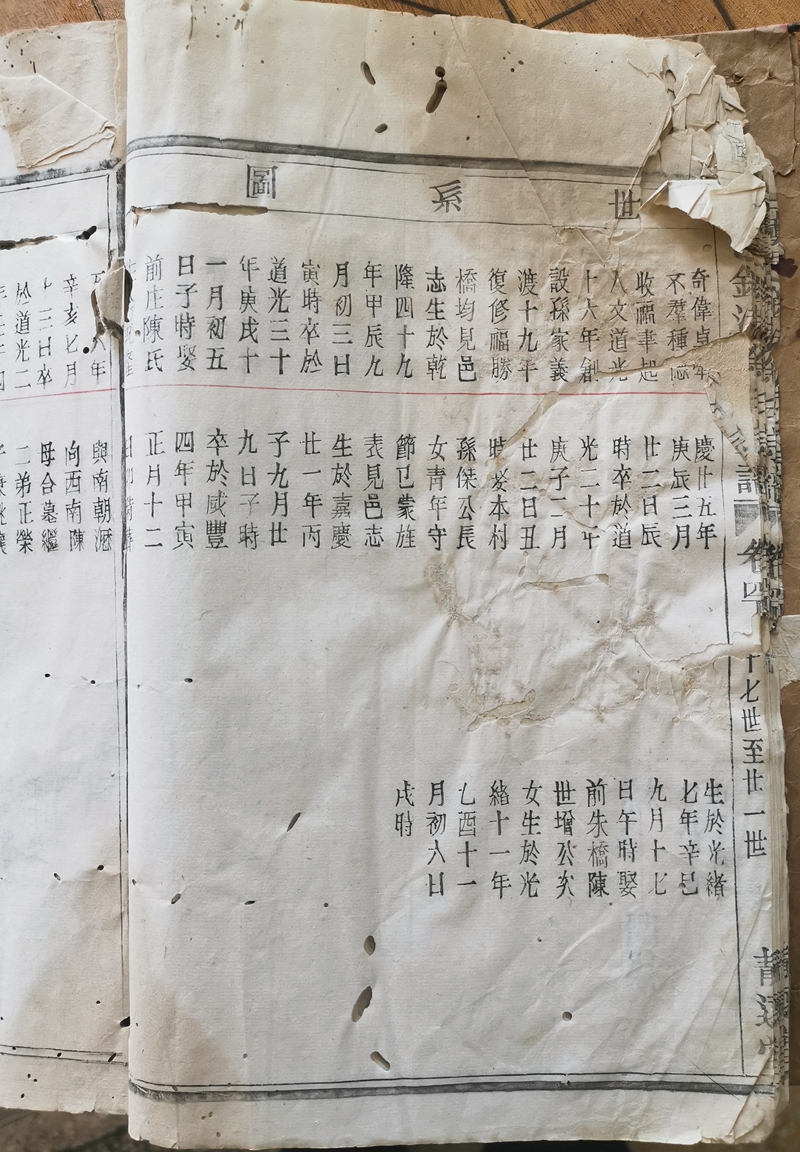 世系圖
奇偉卓犖
不羣種德
收福事起
人文道光
十六年創
設孫家義
渡十九年
復修福勝
橋均見邑
志生於乾
隆四十九
年甲辰九
月初三日
寅時卒於
道光三十
年庚戌十
一月初五
日子時娶
前庄陳氏
慶廿五年
庚辰三月
廿二日辰
時卒於道
光二十年
庚子二月
廿二日丑
時娶本村
孫傑公長
女青年守
節已蒙旌
表見邑志
生於嘉慶
廿一年丙
子九月廿
九日子時
卒於咸豐
四年甲寅
正月十二
生於光緒
七年辛巳
九月十七
日午時娶
前朱橋陳
世增公次
女生於光
緒十一年
乙酉十一
月初六日
戌時
卷四
十七世至廿一世
辛亥七月
十三日卒
於道光二
與南朝
向西南陳
母合墓繼
二弟正榮